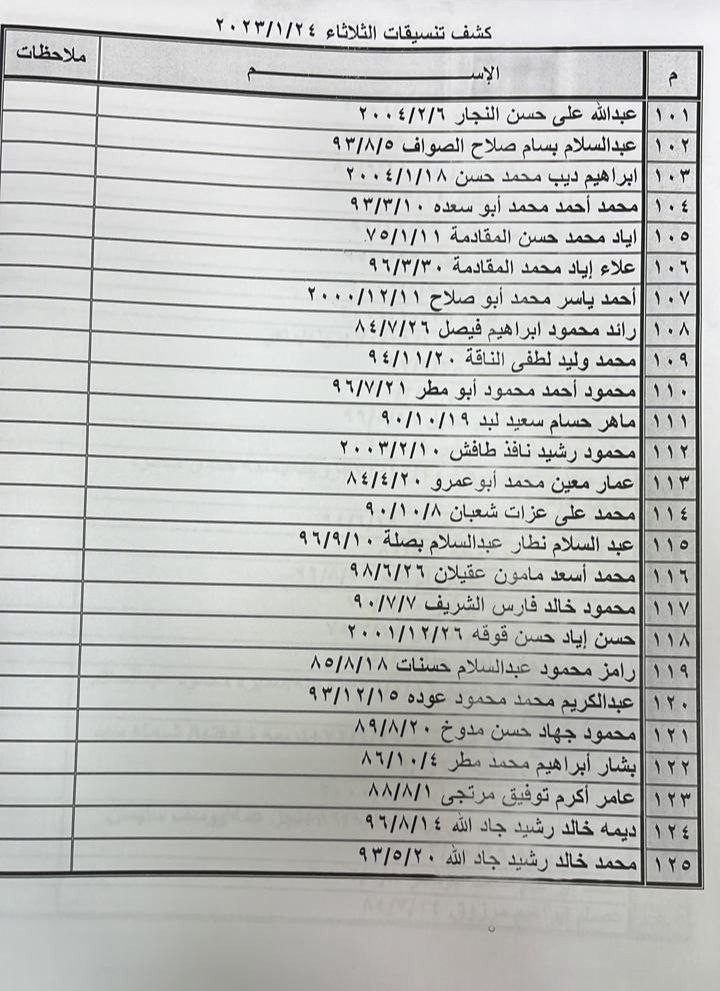 كشف تنسيقات الثلاثاء ٢٠٢٣/١/٢٤
م الإســـــم ملاحظات
١٠١ عبدالله على حسن النجار ٢٠٠٤/٢/٦
١٠٢ عبدالسلام بسام صلاح الصواف ٩٣/٨/٥
١٠٣ ابراهيم ديب محمد حسن ٢٠٠٤/١/١٨
١٠٤ محمد أحمد محمد أبو سعده ٩٣/٣/١٠
١٠٥ اياد محمد حسن المقادمة ٧٥/١/١١
١٠٦ علاء إياد محمد المقادمة ٩٦/٣/٣٠
١٠٧ أحمد ياسر محمد أبو صلاح ٢٠٠٠/١٢/١١
١٠٨ رائد محمود ابراهيم فيصل ٨٤/٧/٢٦
١٠٩ محمد وليد لطفى الناقة ٩٤/١١/٢٠
١١٠ محمود أحمد محمود أبو مطر ٩٦/٧/٢١
١١١ ماهر حسام سعيد لبد ٩٠/١٠/١٩
١١٢ محمود رشيد نافذ طافش ٢٠٠٣/٢/١٠
١١٣ عمار معين محمد أبو عمرو ٨٤/٤/٢٠
١١٤ محمد على عزات شعبان ٩٠/١٠/٨
١١٥ عبد السلام نطار عبدالسلام بصلة ٩٦/٩/١٠
١١٦ محمد أسعد مامون عقيلان ٩٨/٦/٢٦
١١٧ محمود خالد فارس الشريف ٩٠/٧/٧
١١٨ حسن إياد حسن قوقه ٢٠٠١/١٢/٢٦
١١٩ رامز محمود عبدالسلام حسنات ٨٥/٨/١٨
١٢٠ عبدالكريم محمد محمود عوده ٩٣/١٢/١٥
١٢١ محمود جهاد حسن مدوخ ٨٩/٨/٢٠
١٢٢ بشار أبراهيم محمد مطر ٨٦/١٠/٤
١٢٣ عامر أكرم توفيق مرتجى ٨٨/٨/١
١٢٤ ديمه خالد رشيد جاد الله ٩٦/٨/١٤
١٢٥ محمد خالد رشيد جاد الله ٩٣/٥/٢٠